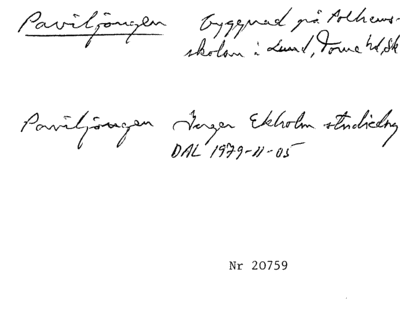 Paviljongen byggnad på Polhems-
skolan i Lund, Torna hd, Sk
Paviljongen Jerger Ekholm studiedag
DAL 1979-11-05
Nr 20759